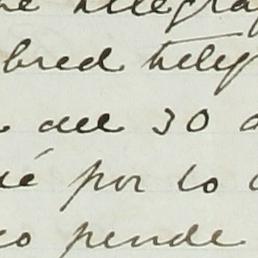 telegra
bred teleg
del 30 d
ié por lo
co pende